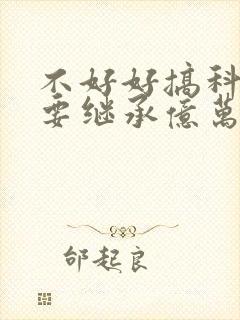 不好好搞科
要继承億萬
邰起良